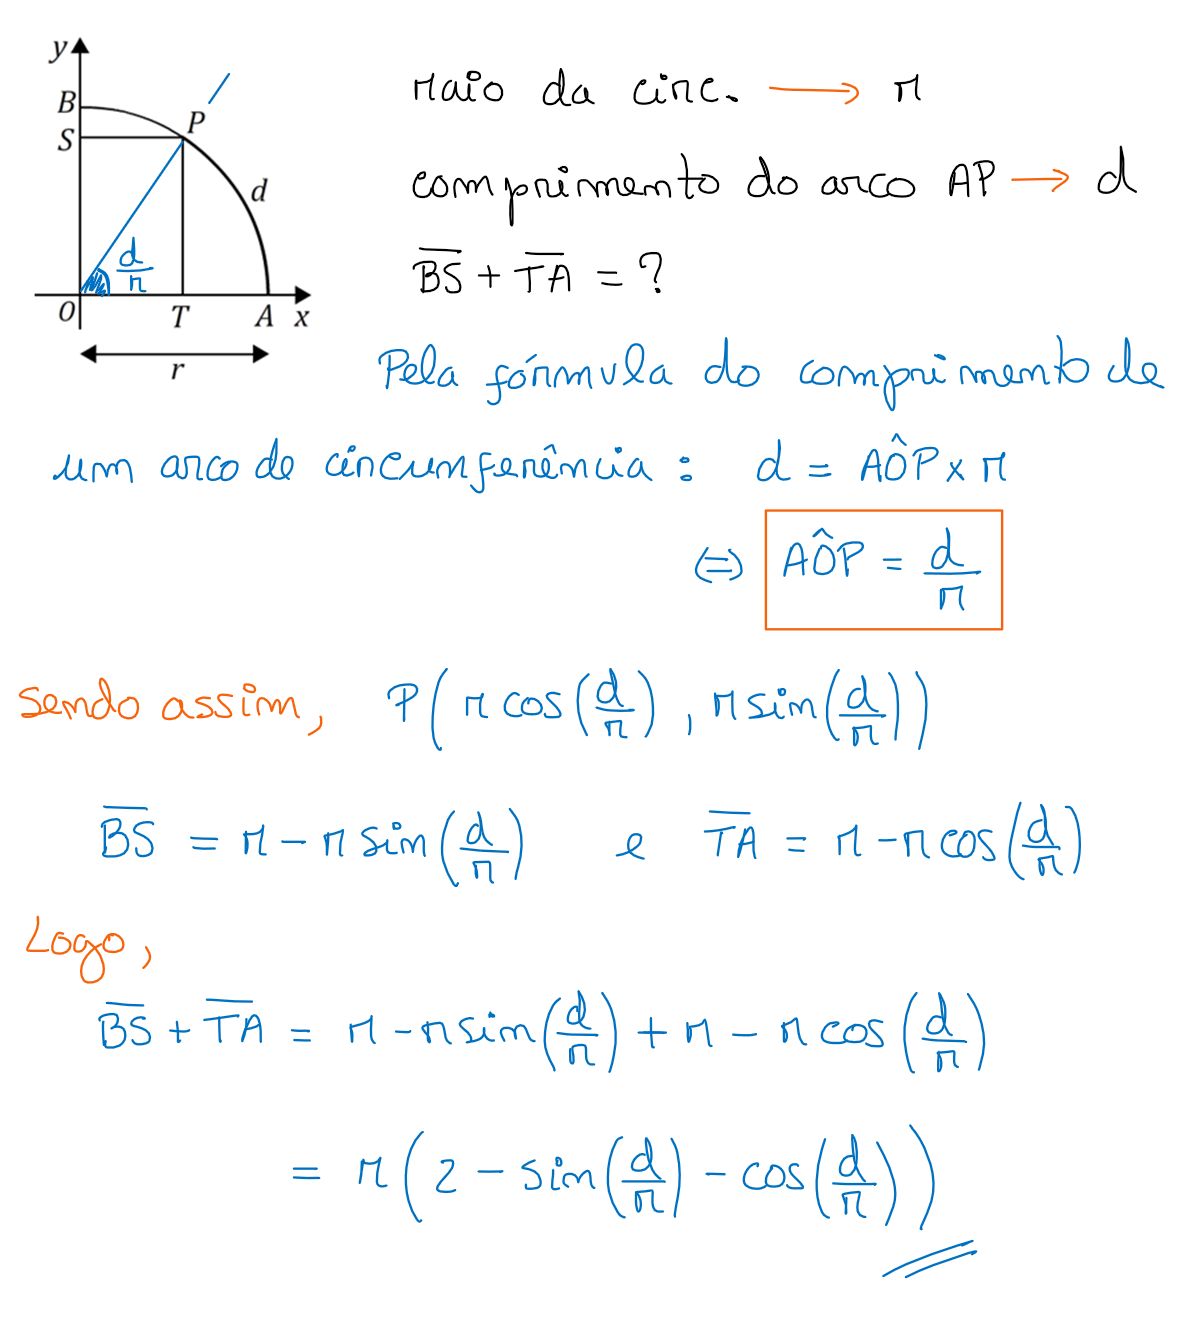 y
B
S
P
d
d/r
O
T
A
x
r
raio da circ. → r
comprimento do arco AP → d
B̅S̅ + T̅A̅ = ?
Pela fórmula do comprimento de
um arco de circunferência : d = AÔP x r
⇔ AÔP = d/r
Sendo assim, P(r cos(d/r), r sin(d/r))
B̅S̅ = r - r sin(d/r) e T̅A̅ = r - r cos(d/r)
Logo,
B̅S̅ + T̅A̅ = r - r sin(d/r) + r - r cos(d/r)
= r(2 - sin(d/r) - cos(d/r))